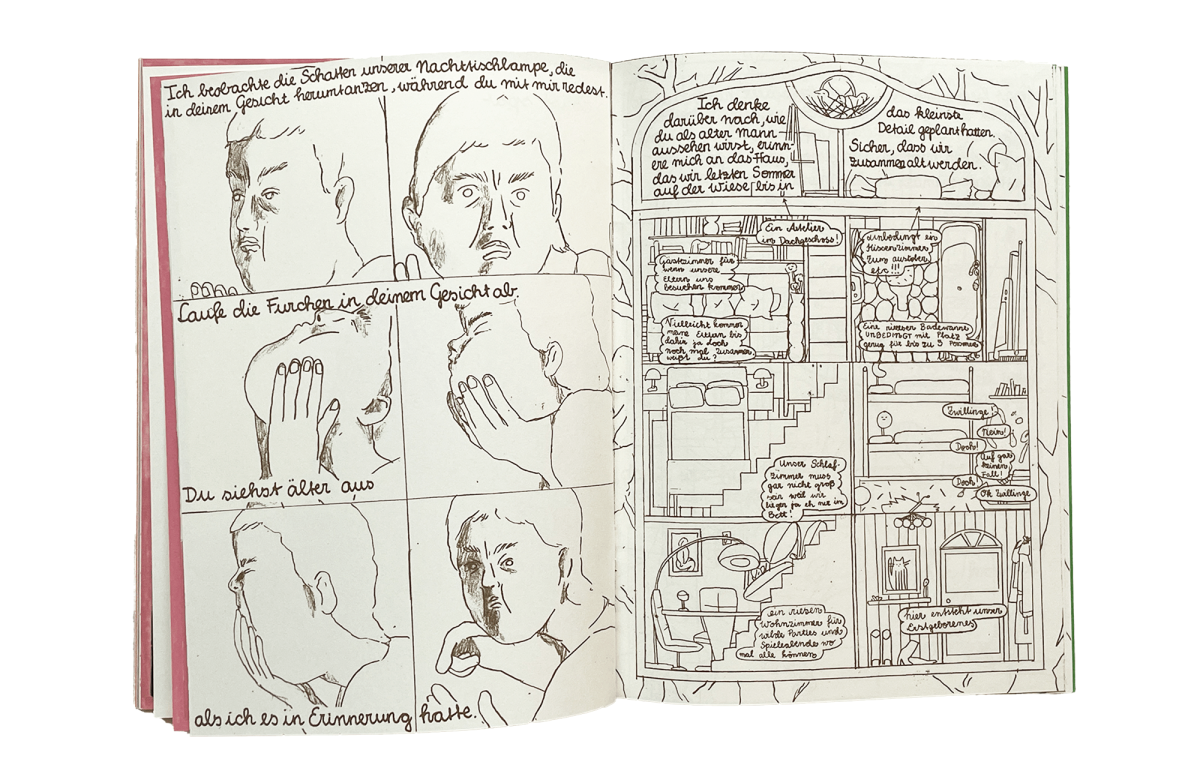 Ich beobachte die Schatten unserer Nachttischlampe, die
in deinem Gesicht herumtanzen, während du mit mir redest.
Laufe die Furchen in deinem Gesicht ab.
Du siehst älter aus
als ich es in Erinnerung hatte.
Ich denke
darüber nach, wie
du als alter Mann
aussehen wirst, erinn-
ere mich an das Haus,
das wir letzten Sommer
auf der Wiese bis in
das kleinste
Detail geplant hatten.
Sicher, dass wir
zusammen alt werden.
Ein Atelier
im Dachgeschoss!
Gästezimmer für
wenn unsere
Eltern uns
besuchen kommen
Vielleicht kommen
meine Eltern bis
dahin ja doch
noch mal zusammen
weißt du?
unbedingt ein
zum
etc!!!
Eine riesen Badewanne
UNBEDINGT mit Platz
genug für bis zu 5 Personen
Unser Schlaf-
zimmer muss
gar nicht groß
sein weil wir
liegen ja eh nur im
Bett!
Zwillinge!
Nein!
Doch!
Auf gar
keinen
Fall!
Doch
OK Zwillinge
ein riesen
Wohnzimmer für
wilde Parties und
Spieleabende wo
mal alle können
hier entsteht unser
Erstgeborenes